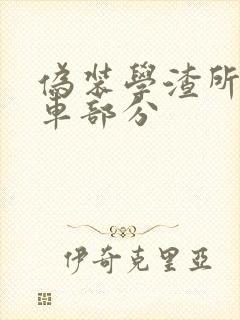 偽裝學渣所
車部分
伊奇克里亞